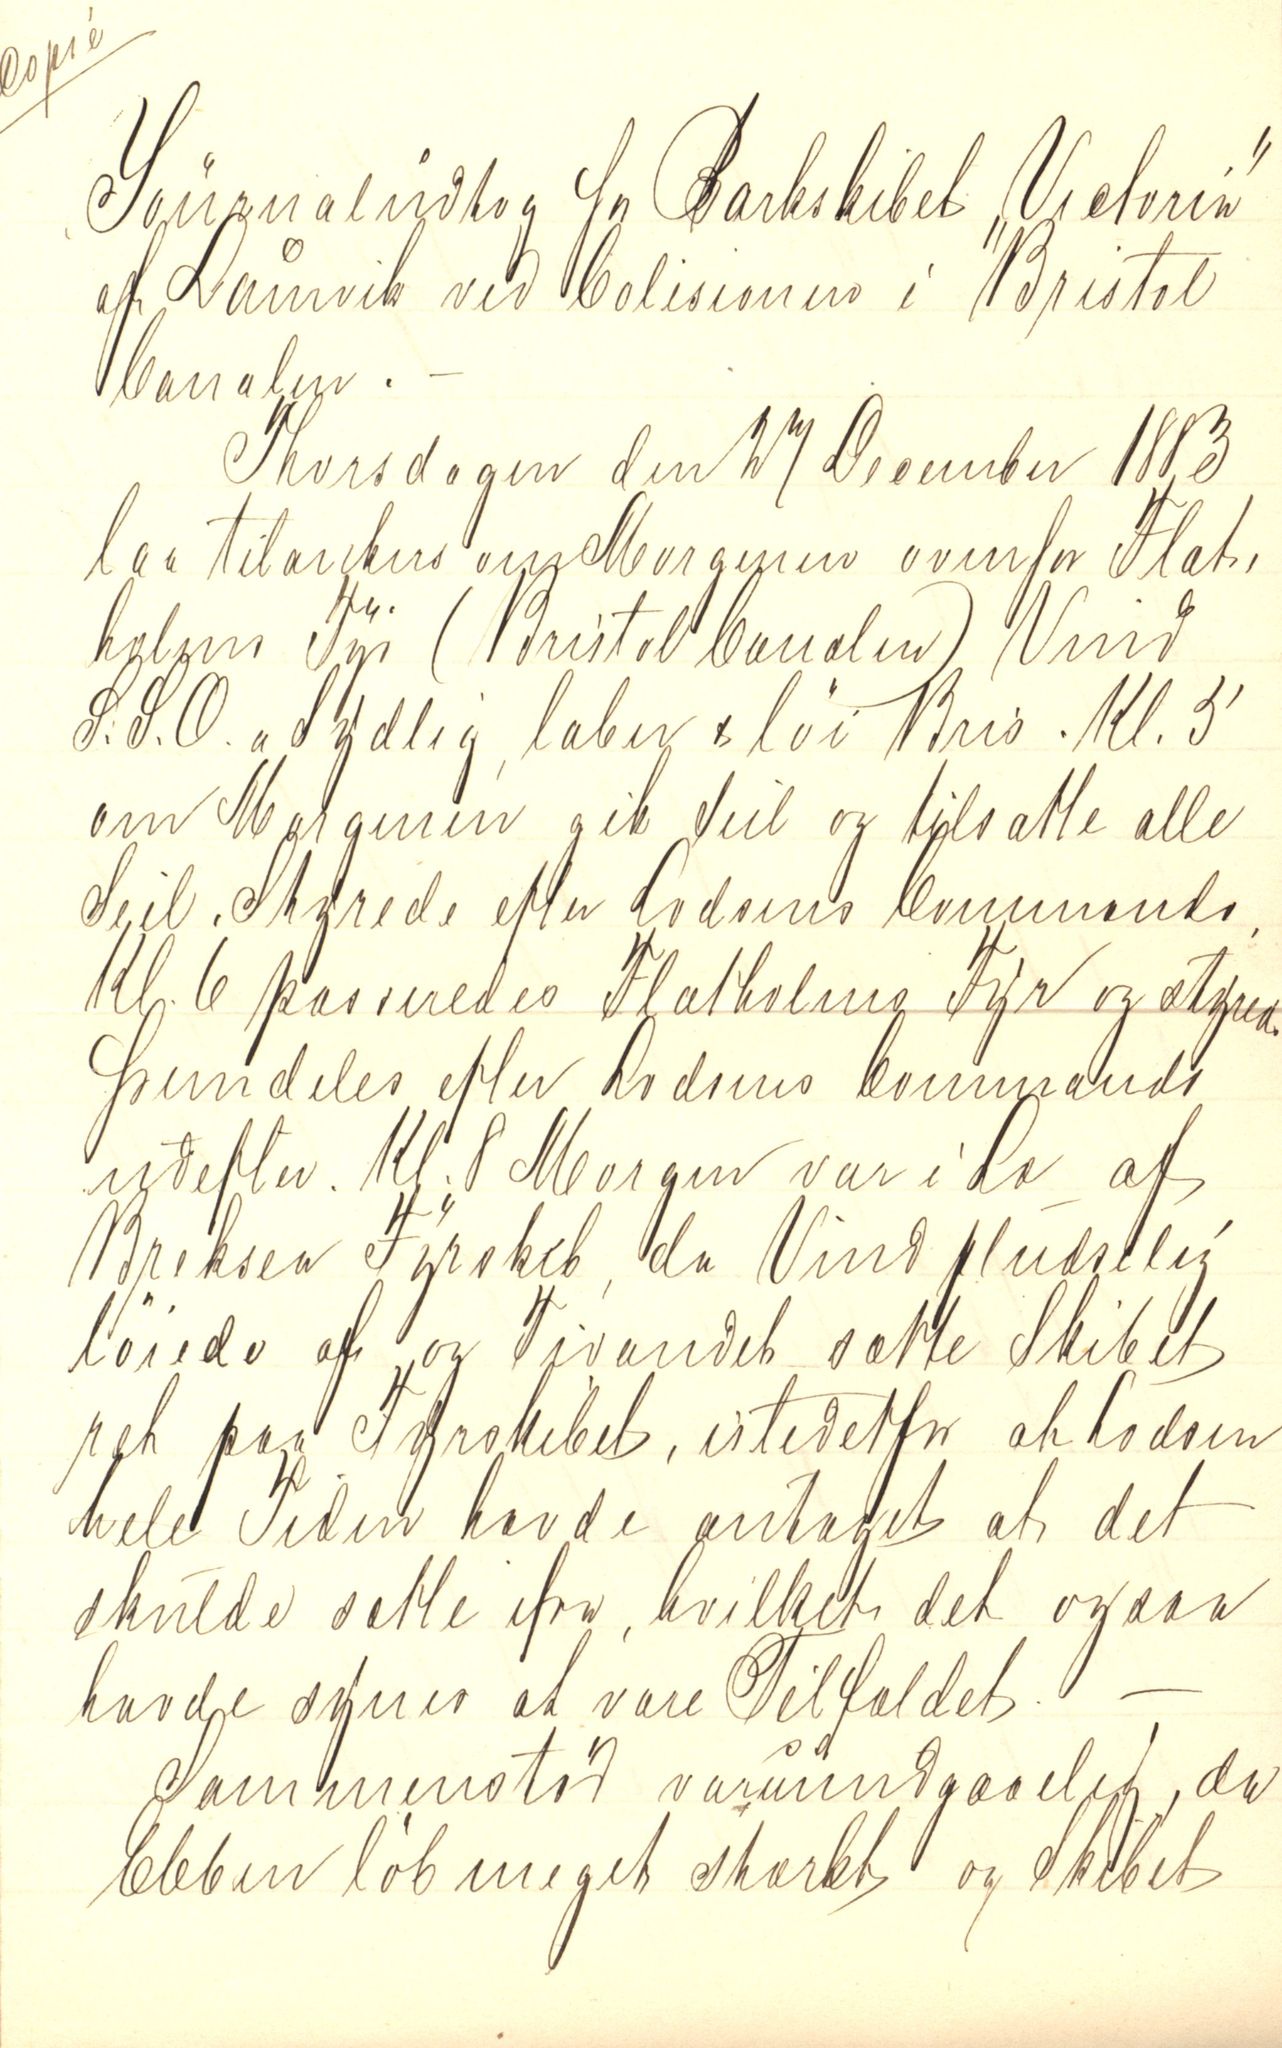 Copie
Journaludtog fra Barkskibet „Victoria"
af Laurvik ved Colisionen i Bristol
Canalen. —
Thorsdagen den 27 December 1883
laa tilankers om Morgenen ovenfor Flat-
holms Fÿr (Bristol Canalen) Vind
S.S.O. a Sydlig, laber & löi Bris. Kl. 5
om Morgenen gik Seil og tilsatte alle
Seil. Styrede efter Lodsens Commando.
Kl. 6 passeredes Flatholms Fÿr og styred.
fremdeles efter Lodsens Commando
udefter. Kl. 8 Morgen var i Læ af
Breksea Fÿrskib, da Vind pludselig
löiede af og Tivandet satte Skibet
ret paa Fÿrskibet, istedetfor at Lodsen
hele Tiden havde antaget at det
skulde sætte ifra, hvilket det ogsaa
havde synes at være Tilfældet. —
Sammenstöd var uundgaaelig, da
Ebben löb meget stærkt og Skibet